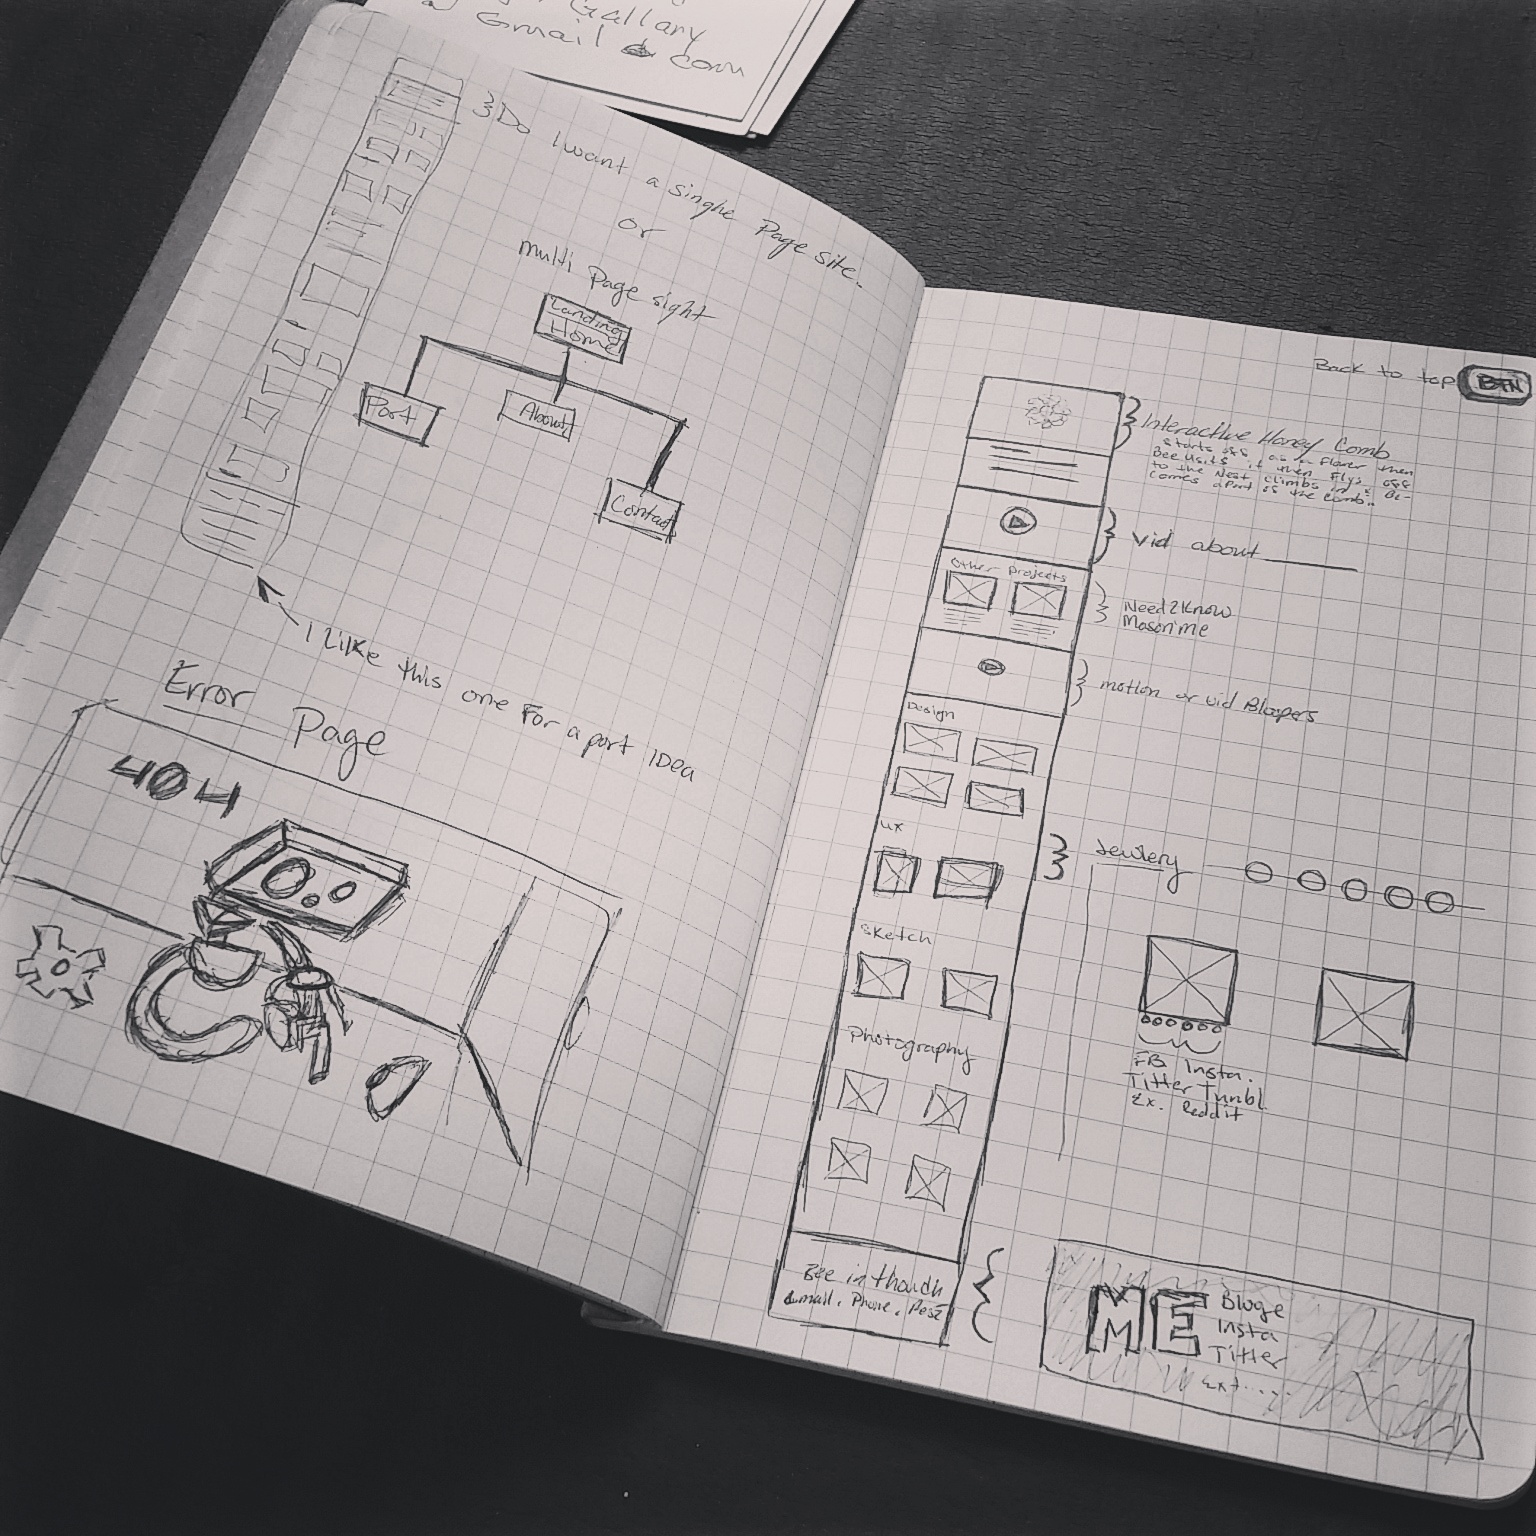 Gallary
Gmail . com
Do I want a singhe Page site.
or
multi Page sight
Landing
Home
Port
About
Contact
I Like this one For a port IDea
Error Page
404
Back to top BTN
Interactive Honey Comb
Starts off as a Flower then
Bee visits it then Flys off
to the Nest, climbs in & Be-
comes apart of the comb.
Vid about
Other Projects
Need2Know
Mason'me
motion or vid Bloopers
Design
UX
Jewlery
Sketch
Photography
FB Insta.
Titter Tumbl
Ex. Reddit
Bee in thouch
Email, Phone, Post
ME
Bloge
Insta
Titter
Ext....